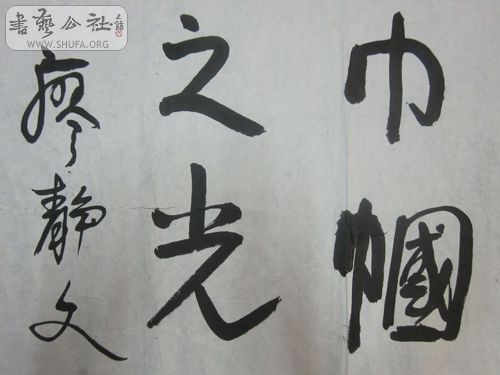 巾帼
之光
廖静文
書藝公社
WWW.SHUFA.ORG